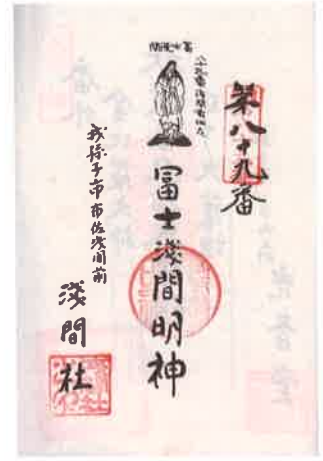 第八十九番
冨士淺間明神
我孫子市布佐浅間前
淺間
社